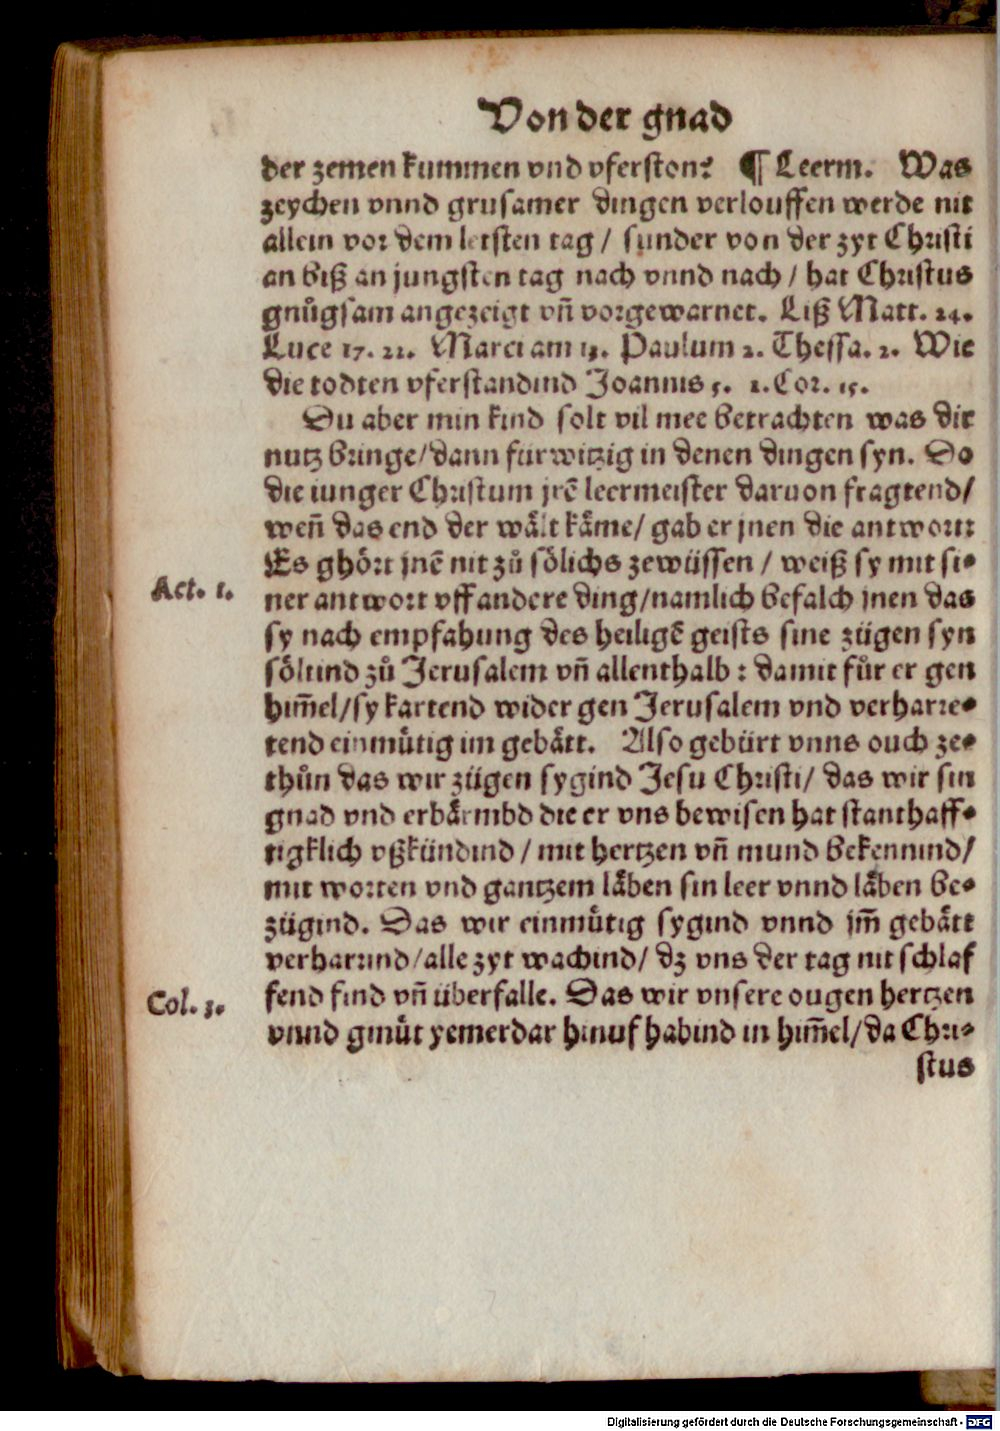 Von der gnad
der zemen kummen vnd vferston? ¶ Leerm. Was
zeychen vnnd grusamer dingen verlouffen werde nit
allein vor dem letsten tag / sunder von der zyt Christi
an biß an jungsten tag nach vnnd nach / hat Christus
gnůgsam angezeigt vñ vorgewarnet. Liß Matt. 24.
Luce 17. 21. Marci am 13. Paulum 2. Thessa. 2. Wie
die todten vferstandind Joannis 5. 1. Cor. 15.
Du aber min kind solt vil mee betrachten was dir
nutz bringe / dann fürwitzig in denen dingen syn. Do
die iunger Christum jrē leermeister daruon fragtend /
weñ das end der wält käme / gab er jnen die antwort:
Es ghört jnē nit zů sölichs zewüssen / weiß sy mit si-
Act. 1.
ner antwort vff andere ding / namlich befalch jnen das
sy nach empfahung des heiligē geists sine zügen syn
söltind zů Jerusalem vñ allenthalb: damit fůr er gen
him̃el / sy kartend wider gen Jerusalem vnd verharre-
tend einmütig im gebätt. Also gebürt vnns ouch ze-
thůn das wir zügen sygind Jesu Christi / das wir sin
gnad vnd erbärmbd die er vns bewisen hat stanthaff-
tigklich vßkündind / mit hertzen vñ mund bekennind /
mit worten vnd gantzem läben sin leer vnnd läben be-
zügind. Das wir einmütig sygind vnnd jm̃ gebätt
verharrind / alle zyt wachind / dz vns der tag nit schlaf
fend find vñ überfalle. Das wir vnsere ougen hertzen
Col. 3.
vnnd gmüt yemerdar hinuf habind in him̃el / da Chri-
stus
Digitalisierung gefördert durch die Deutsche Forschungsgemeinschaft - DFG